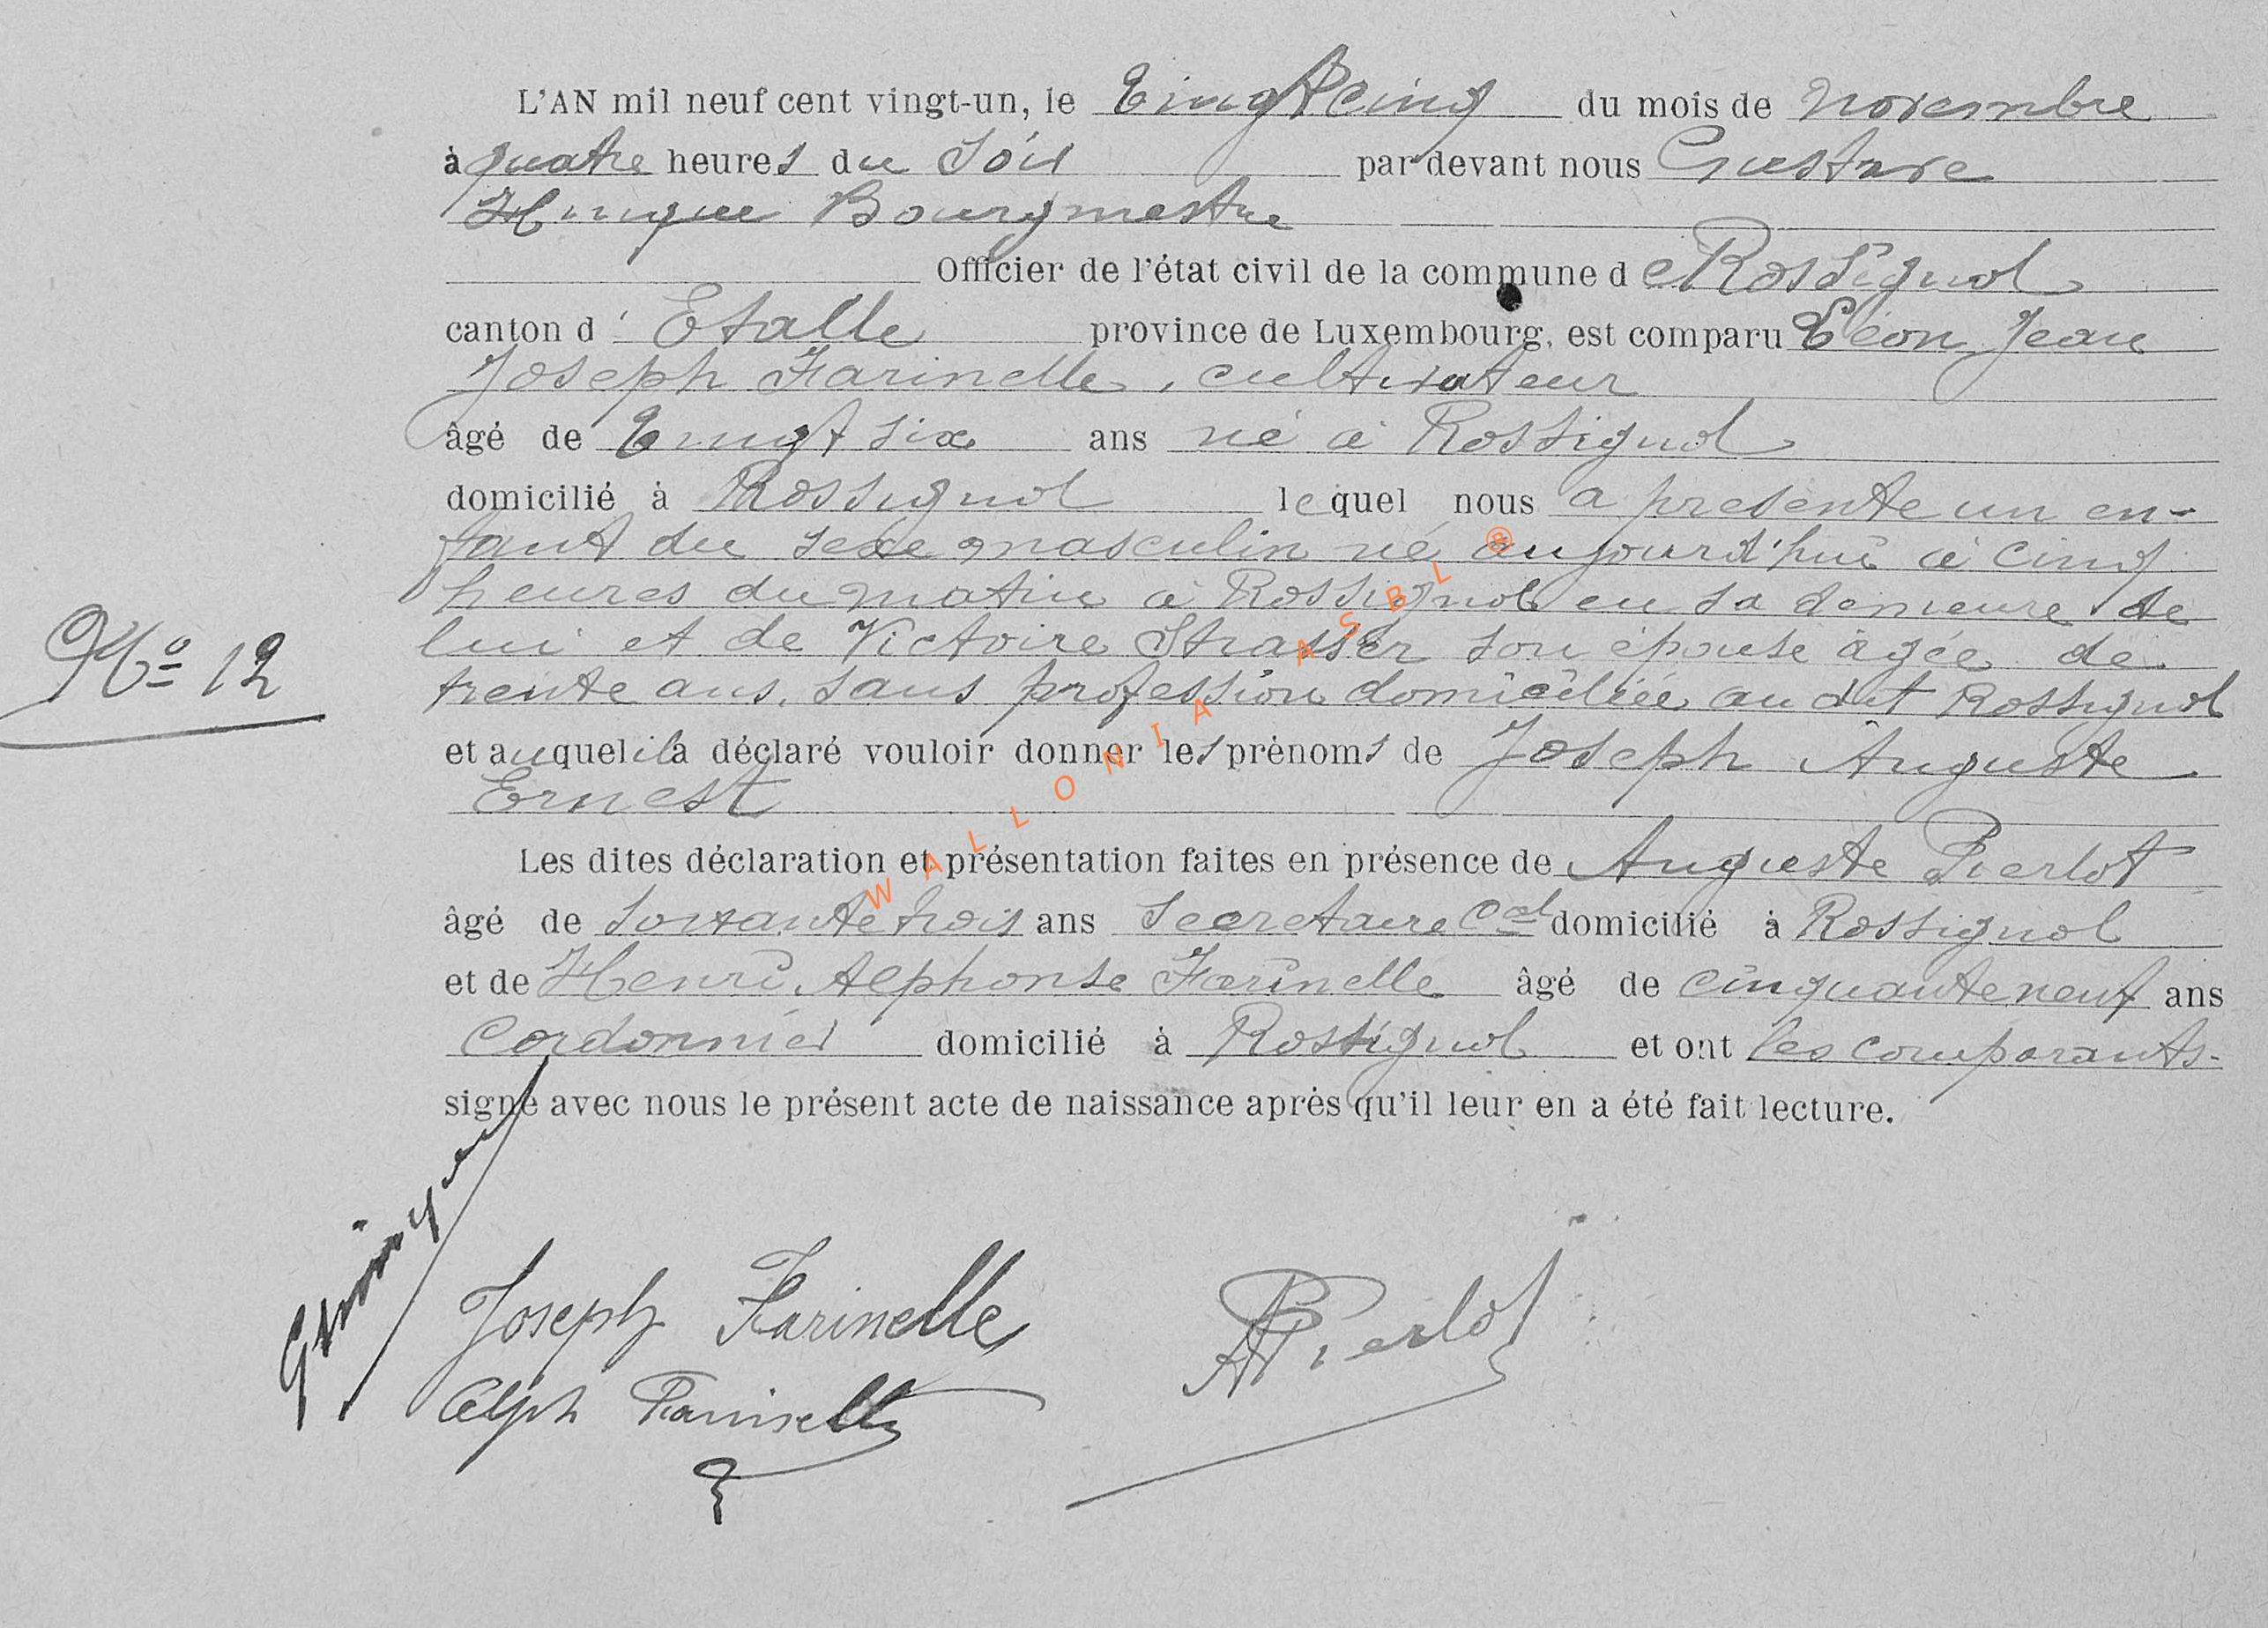 L'AN mil neuf cent vingt-un, le Vingt cinq du mois de novembre
à quatre heures du Soir par devant nous Gustave
Hinque Bourgmestre
Officier de l'état civil de la commune de Rossignol
canton d' Etalle province de Luxembourg, est comparu Léon Jean
Joseph Farinelle, cultivateur
âgé de Vingt six ans né à Rossignol
domicilié à Rossignol lequel nous a presenté un en-
fant du sexe masculin né aujourd'hui à cinq
heures du matin à Rossignol en sa demeure de
N° 12
lui et de Victoire Strasser son épouse âgée de
trente ans, sans profession domiciliée au dit Rossignol
et auquel il a déclaré vouloir donner les prénoms de Joseph Auguste
Ernest
Les dites déclaration et présentation faites en présence de Auguste Pierlot
âgé de Soixante trois ans Secretaire Cal domicilié à Rossignol
et de Henri Alphonse Farinelle âgé de cinquante neuf ans
Cordonnier domicilié à Rossignol et ont les comparants
signé avec nous le présent acte de naissance après qu'il leur en a été fait lecture.
Joseph Farinelle
APierlot
Alph Farinelle
WALLONIA ASBL ®